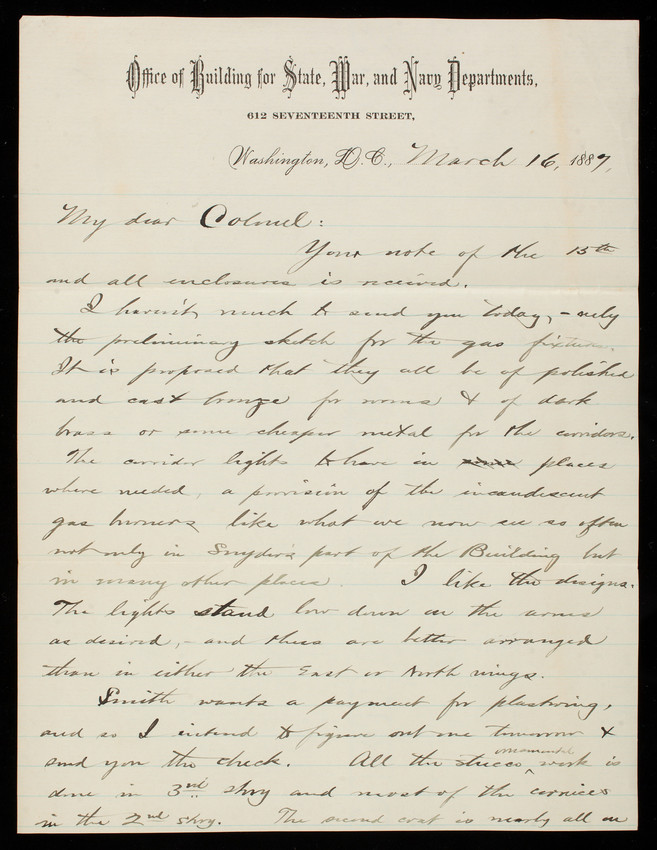 Office of Building for State, War, and Navy Departments,
612 SEVENTEENTH STREET,
Washington, D.C., March 16, 1887,
My dear Colonel:
Your note of the 15th
and all enclosures is received.
I haven't much to send you today, - only
the preliminary sketch for the gas fixtures.
It is proposed that they all be of polished
and cast bronze for rooms & of dark
brass or some cheaper metal for the corridors.
The corridor lights to have in places
where needed, a provision of the incandescent
gas burners like what we now see so often
not only in Snyder's part of the Building but
in many other places. I like the designs.
The lights stand low down on the arms
as desired, - and these are better arranged
than in either the East or North wings.
Smith wants a payment for plastering,
and so I intend to figure out one tomorrow &
send you the check. All the stucco ^ work is
ornamental
done in 3rd story and most of the cornices
in the 2nd story. The second coat is nearly all on